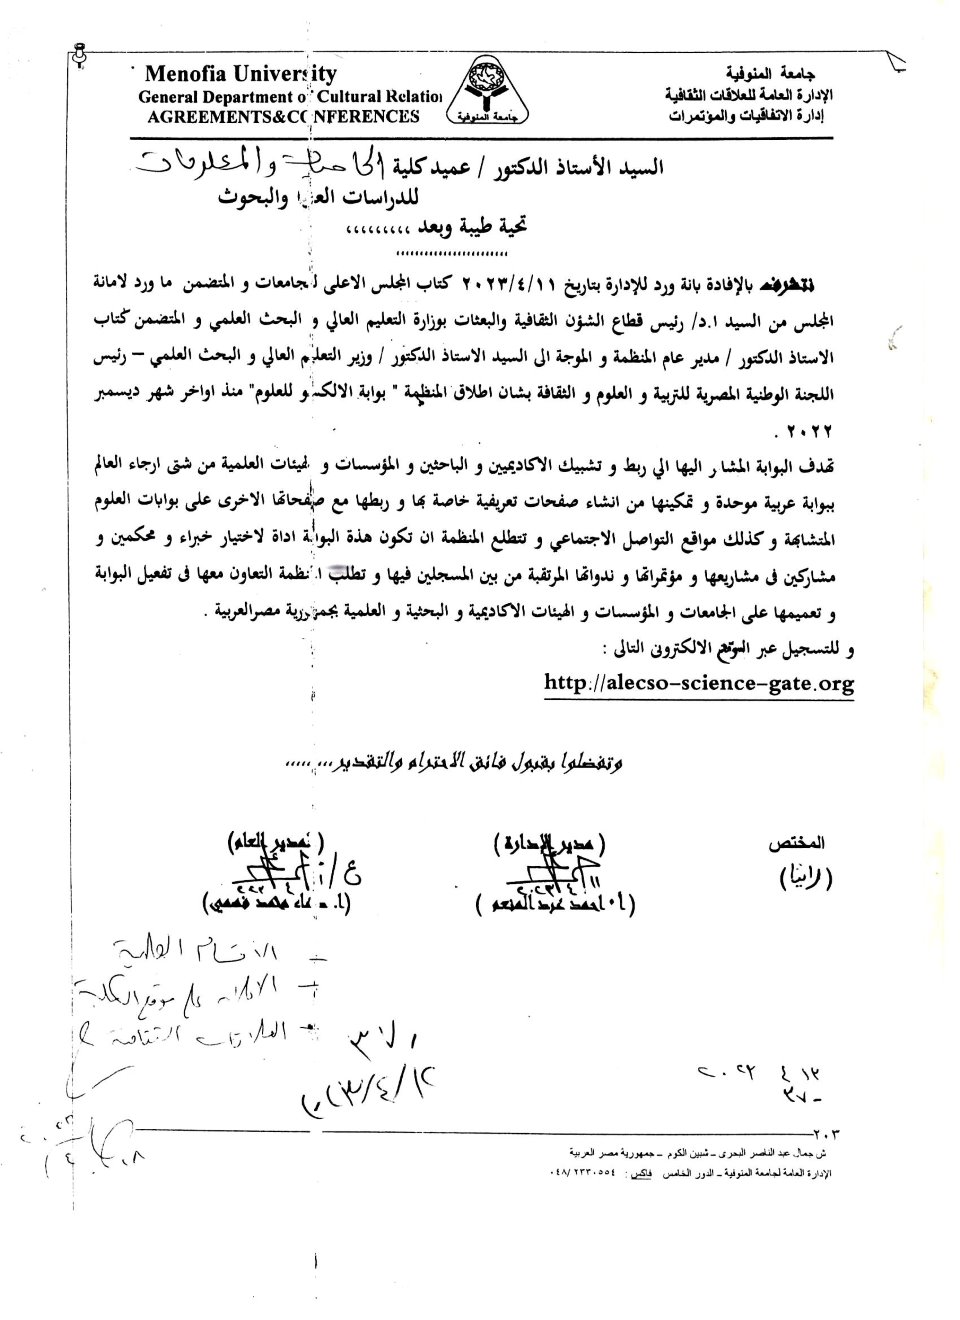 Menofia University
General Department of Cultural Relation
AGREEMENTS&CONFERENCES
جامعة المنوفية
جامعة المنوفية
الإدارة العامة للعلاقات الثقافية
إدارة الاتفاقيات والمؤتمرات
السيد الأستاذ الدكتور / عميد كلية الحاسبات والمعلومات
للدراسات العليا والبحوث
تحية طيبة وبعد ,,,,,,,,,
نتشرف بالإفادة بانة ورد للإدارة بتاريخ ٢٠٢٣/٤/١١ كتاب المجلس الاعلى للجامعات و المتضمن ما ورد لامانة
المجلس من السيد ا.د/ رئيس قطاع الشؤن الثقافية والبعثات بوزارة التعليم العالي و البحث العلمي و المتضمن كتاب
الاستاذ الدكتور / مدير عام المنظمة و الموجة الى السيد الاستاذ الدكتور / وزير التعليم العالي و البحث العلمي – رئيس
اللجنة الوطنية المصرية للتربية و العلوم و الثقافة بشان اطلاق المنظمة " بوابة الالكسو للعلوم" منذ اواخر شهر ديسمبر
٢٠٢٢ .
تهدف البوابة المشار اليها الي ربط و تشبيك الاكاديميين و الباحثين و المؤسسات و الهيئات العلمية من شتى ارجاء العالم
ببوابة عربية موحدة و تمكينها من انشاء صفحات تعريفية خاصة بها و ربطها مع صفحاتها الاخرى على بوابات العلوم
المتشابهة و كذلك مواقع التواصل الاجتماعي و تتطلع المنظمة ان تكون هذة البوابة اداة لاختيار خبراء و محكمين و
مشاركين فى مشاريعها و مؤتمراتها و ندواتها المرتقبة من بين المسجلين فيها و تطلب المنظمة التعاون معها فى تفعيل البوابة
و تعميمها على الجامعات و المؤسسات و الهيئات الاكاديمية و البحثية و العلمية بجمهورية مصرالعربية .
و للتسجيل عبر الموقع الالكترونى التالى :
http://alecso-science-gate.org
وتفضلوا بقبول فائق الاحترام والتقدير,,,,,,
المختص
(مدير الإدارة)
(المدير العام)
(رانيا)
(أ/ احمد عبد المنعم)
- الأقسام العلمية
- الاعلان على موقع الكلية
- العلاقات الثقافية
٢٠٢٣/٤/١٢
٢٠٢٣ ٤ ١٢
٢٠٣
ش جمال عبد الناصر البحرى – شبين الكوم – جمهورية مصر العربية
الإدارة العامة لجامعة المنوفية – الدور الخامس فاكس : ٠٤٨/٢٢٣٠٥٥٤